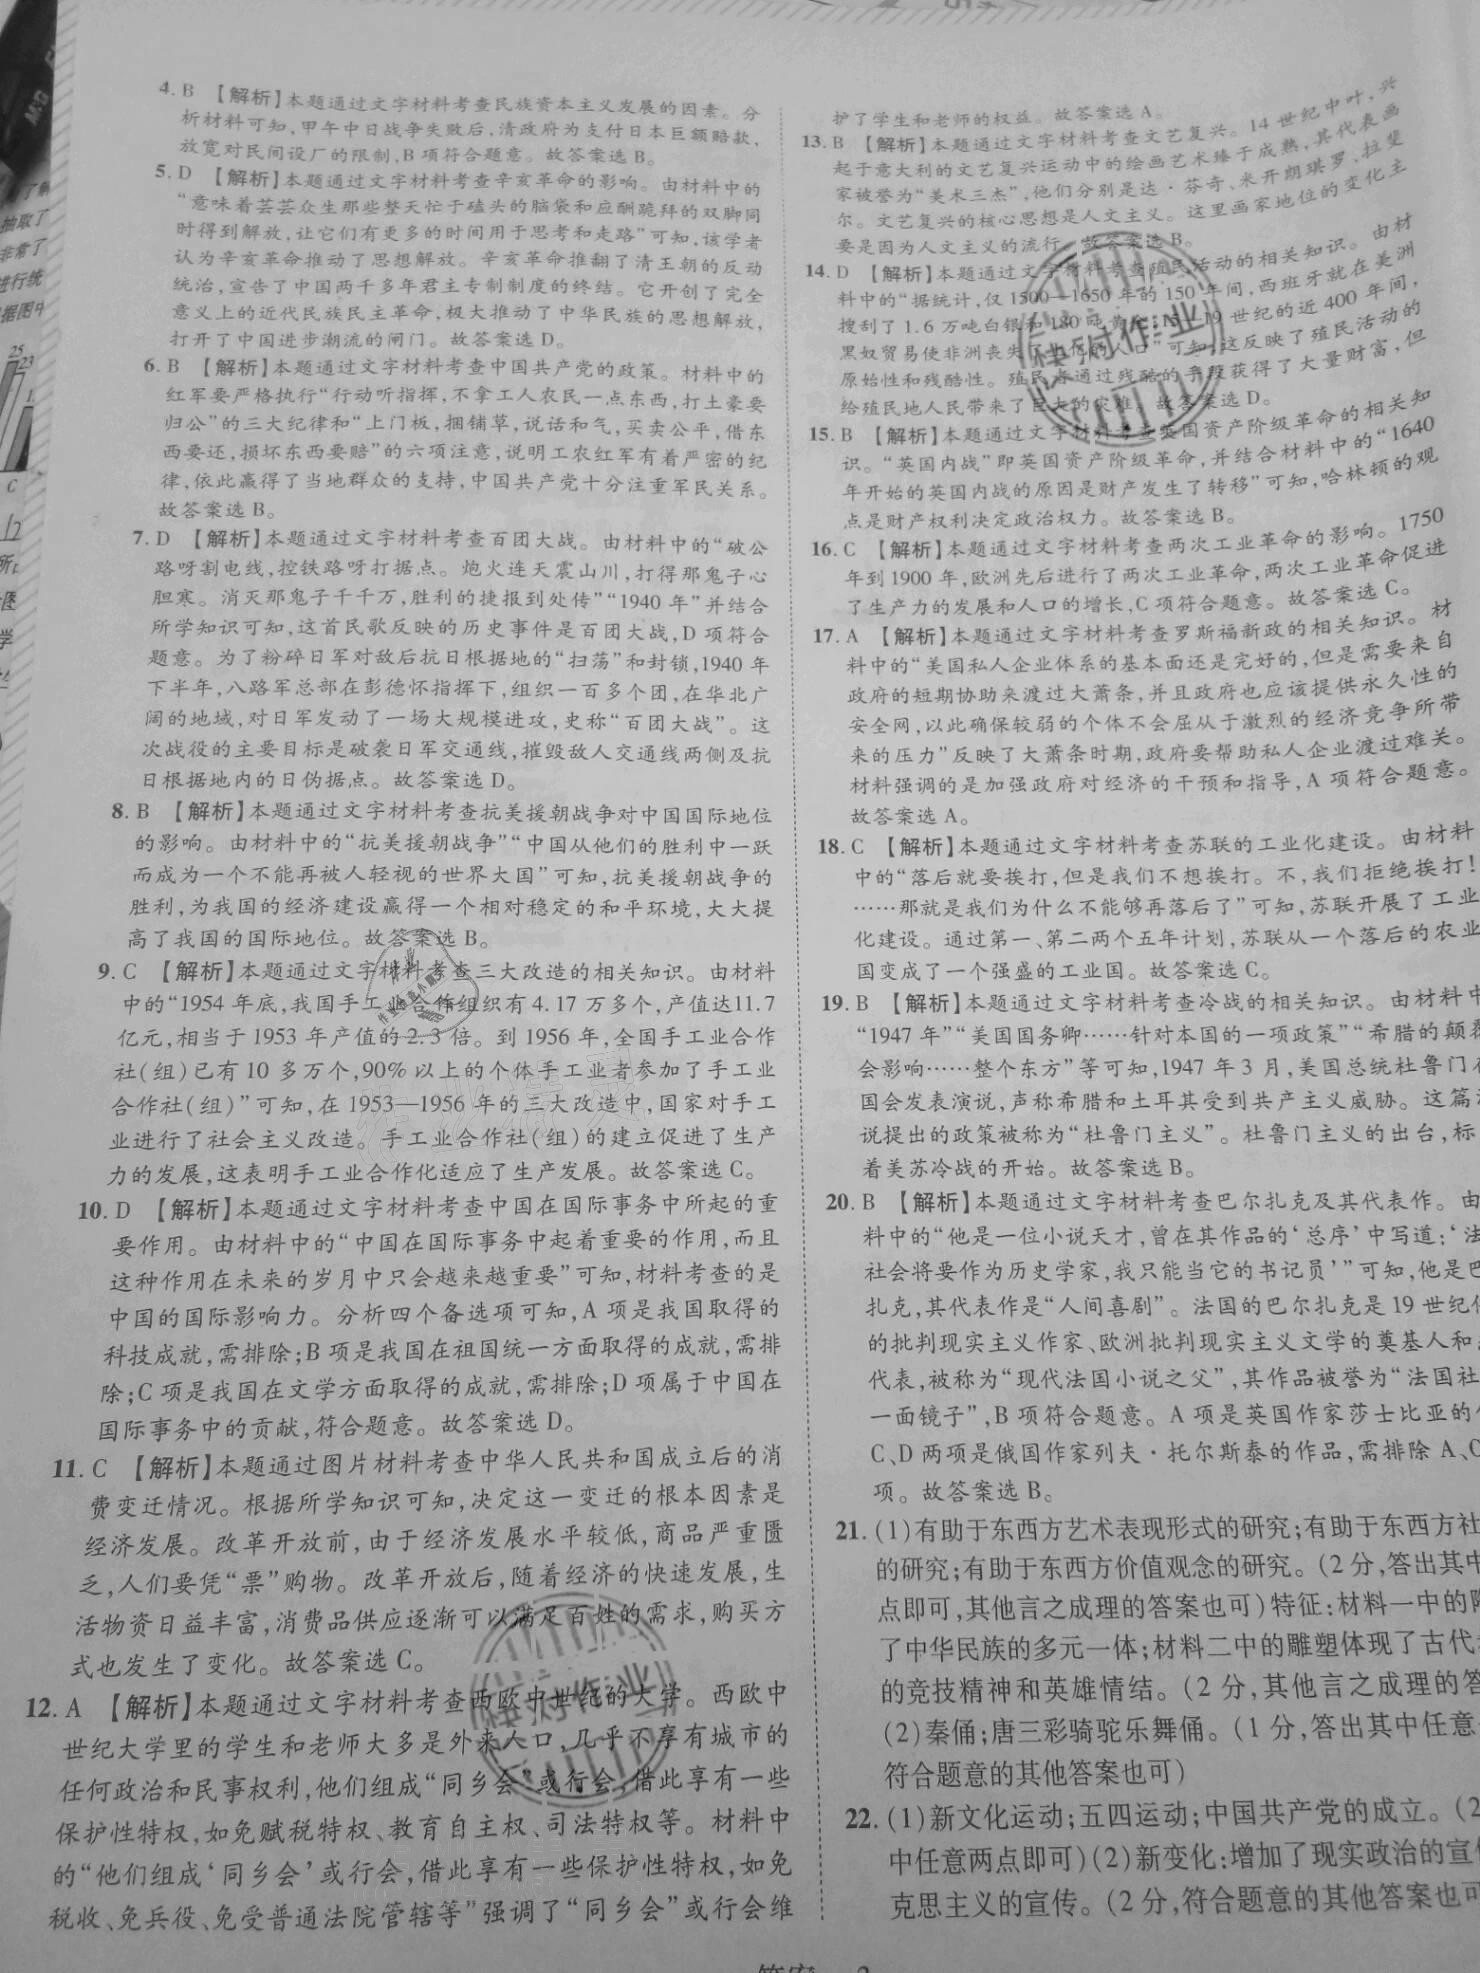 4. B 【解析】本题通过文字材料考查民族资本主义发展的因素。分
析材料可知,甲午中日战争失败后,清政府为支付日本巨额赔款,
放宽对民间设厂的限制,B项符合题意。故答案选B。
5. D 【解析】本题通过文字材料考查辛亥革命的影响。由材料中的
“意味着芸芸众生那些整天忙于磕头的脑袋和应酬跪拜的双脚同
时得到解放,让它们有更多的时间用于思考和走路”可知,该学者
认为辛亥革命推动了思想解放。辛亥革命推翻了清王朝的反动
统治,宣告了中国两千多年君主专制制度的终结。它开创了完全
意义上的近代民族民主革命,极大推动了中华民族的思想解放,
打开了中国进步潮流的闸门。故答案选D。
6. B 【解析】本题通过文字材料考查中国共产党的政策。材料中的
红军要严格执行“行动听指挥,不拿工人农民一点东西,打土豪要
归公”的三大纪律和“上门板,捆铺草,说话和气,买卖公平,借东
西要还,损坏东西要赔”的六项注意,说明工农红军有着严密的纪
律,依此赢得了当地群众的支持,中国共产党十分注重军民关系。
故答案选B。
7. D 【解析】本题通过文字材料考查百团大战。由材料中的“破公
路呀割电线,控铁路呀打据点。炮火连天震山川,打得那鬼子心
胆寒。消灭那鬼子千千万,胜利的捷报到处传”“1940年”并结合
所学知识可知,这首民歌反映的历史事件是百团大战,D项符合
题意。为了粉碎日军对敌后抗日根据地的“扫荡”和封锁,1940年
下半年,八路军总部在彭德怀指挥下,组织一百多个团,在华北广
阔的地域,对日军发动了一场大规模进攻,史称“百团大战”。这
次战役的主要目标是破袭日军交通线,摧毁敌人交通线两侧及抗
日根据地内的日伪据点。故答案选D。
8. B 【解析】本题通过文字材料考查抗美援朝战争对中国国际地位
的影响。由材料中的“抗美援朝战争”“中国从他们的胜利中一跃
而成为一个不能再被人轻视的世界大国”可知,抗美援朝战争的
胜利,为我国的经济建设赢得一个相对稳定的和平环境,大大提
高了我国的国际地位。故答案选B。
9. C 【解析】本题通过文字材料考查三大改造的相关知识。由材料
中的“1954年底,我国手工业合作组织有4.17万多个,产值达11.7
亿元,相当于1953年产值的2.3倍。到1956年,全国手工业合作
社(组)已有10多万个,90%以上的个体手工业者参加了手工业
合作社(组)”可知,在1953—1956年的三大改造中,国家对手工
业进行了社会主义改造。手工业合作社(组)的建立促进了生产
力的发展,这表明手工业合作化适应了生产发展。故答案选C。
10. D 【解析】本题通过文字材料考查中国在国际事务中所起的重
要作用。由材料中的“中国在国际事务中起着重要的作用,而且
这种作用在未来的岁月中只会越来越重要”可知,材料考查的是
中国的国际影响力。分析四个备选项可知,A项是我国取得的
科技成就,需排除;B项是我国在祖国统一方面取得的成就,需排
除;C项是我国在文学方面取得的成就,需排除;D项属于中国在
国际事务中的贡献,符合题意。故答案选D。
11. C 【解析】本题通过图片材料考查中华人民共和国成立后的消
费变迁情况。根据所学知识可知,决定这一变迁的根本因素是
经济发展。改革开放前,由于经济发展水平较低,商品严重匮
乏,人们要凭“票”购物。改革开放后,随着经济的快速发展,生
活物资日益丰富,消费品供应逐渐可以满足百姓的需求,购买方
式也发生了变化。故答案选C。
12. A 【解析】本题通过文字材料考查西欧中世纪的大学。西欧中
世纪大学里的学生和老师大多是外来人口,几乎不享有城市的
任何政治和民事权利,他们组成“同乡会”或行会,借此享有一些
保护性特权,如免赋税特权、教育自主权、司法特权等。材料中
的“他们组成‘同乡会’或行会,借此享有一些保护性特权,如免
税收、免兵役、免受普通法院管辖等”强调了“同乡会”或行会维
护了学生和老师的权益。故答案选A。
13. B 【解析】本题通过文字材料考查文艺复兴。14世纪中叶,兴
起于意大利的文艺复兴运动中的绘画艺术臻于成熟,其代表画
家被誉为“美术三杰”,他们分别是达·芬奇、米开朗琪罗、拉斐
尔。文艺复兴的核心思想是人文主义。这里画家地位的变化主
要是因为人文主义的流行。故答案选B。
14. D 【解析】本题通过文字材料考查殖民活动的相关知识。由材
料中的“据统计,仅1500—1650年的150年间,西班牙就在美洲
搜刮了1.6万吨白银和180吨黄金;15—19世纪的近400年间,
黑奴贸易使非洲丧失了上亿的人口”可知,这反映了殖民活动的
原始性和残酷性。殖民者通过残酷的手段获得了大量财富,但
给殖民地人民带来了巨大的灾难。故答案选D。
15. B 【解析】本题通过文字材料考查英国资产阶级革命的相关知
识。“英国内战”即英国资产阶级革命,并结合材料中的“1640
年开始的英国内战的原因是财产发生了转移”可知,哈林顿的观
点是财产权利决定政治权力。故答案选B。
16. C 【解析】本题通过文字材料考查两次工业革命的影响。1750
年到1900年,欧洲先后进行了两次工业革命,两次工业革命促进
了生产力的发展和人口的增长,C项符合题意。故答案选C。
17. A 【解析】本题通过文字材料考查罗斯福新政的相关知识。材
料中的“美国私人企业体系的基本面还是完好的,但是需要来自
政府的短期协助来渡过大萧条,并且政府也应该提供永久性的
安全网,以此确保较弱的个体不会屈从于激烈的经济竞争所带
来的压力”反映了大萧条时期,政府要帮助私人企业渡过难关。
材料强调的是加强政府对经济的干预和指导,A项符合题意。
故答案选A。
18. C 【解析】本题通过文字材料考查苏联的工业化建设。由材料
中的“落后就要挨打,但是我们不想挨打。不,我们拒绝挨打!
……那就是我们为什么不能够再落后了”可知,苏联开展了工业
化建设。通过第一、第二两个五年计划,苏联从一个落后的农业
国变成了一个强盛的工业国。故答案选C。
19. B 【解析】本题通过文字材料考查冷战的相关知识。由材料中
“1947年”“美国国务卿……针对本国的一项政策”“希腊的颠覆
会影响……整个东方”等可知,1947年3月,美国总统杜鲁门在
国会发表演说,声称希腊和土耳其受到共产主义威胁。这篇演
说提出的政策被称为“杜鲁门主义”。杜鲁门主义的出台,标
着美苏冷战的开始。故答案选B。
20. B 【解析】本题通过文字材料考查巴尔扎克及其代表作。由
料中的“他是一位小说天才,曾在其作品的‘总序’中写道:‘法
社会将要作为历史学家,我只能当它的书记员’”可知,他是巴
扎克,其代表作是“人间喜剧”。法国的巴尔扎克是19世纪
的批判现实主义作家、欧洲批判现实主义文学的奠基人和
代表,被称为“现代法国小说之父”,其作品被誉为“法国社
一面镜子”,B项符合题意。A项是英国作家莎士比亚的
C、D两项是俄国作家列夫·托尔斯泰的作品,需排除A、C
项。故答案选B。
21. (1)有助于东西方艺术表现形式的研究;有助于东西方社
的研究;有助于东西方价值观念的研究。(2分,答出其中
点即可,其他言之成理的答案也可)特征:材料一中的
了中华民族的多元一体;材料二中的雕塑体现了古代
的竞技精神和英雄情结。(2分,其他言之成理的答
(2)秦俑;唐三彩骑驼乐舞俑。(1分,答出其中任意
符合题意的其他答案也可)
22. (1)新文化运动;五四运动;中国共产党的成立。(2
中任意两点即可)(2)新变化:增加了现实政治的宣
克思主义的宣传。(2分,符合题意的其他答案也可